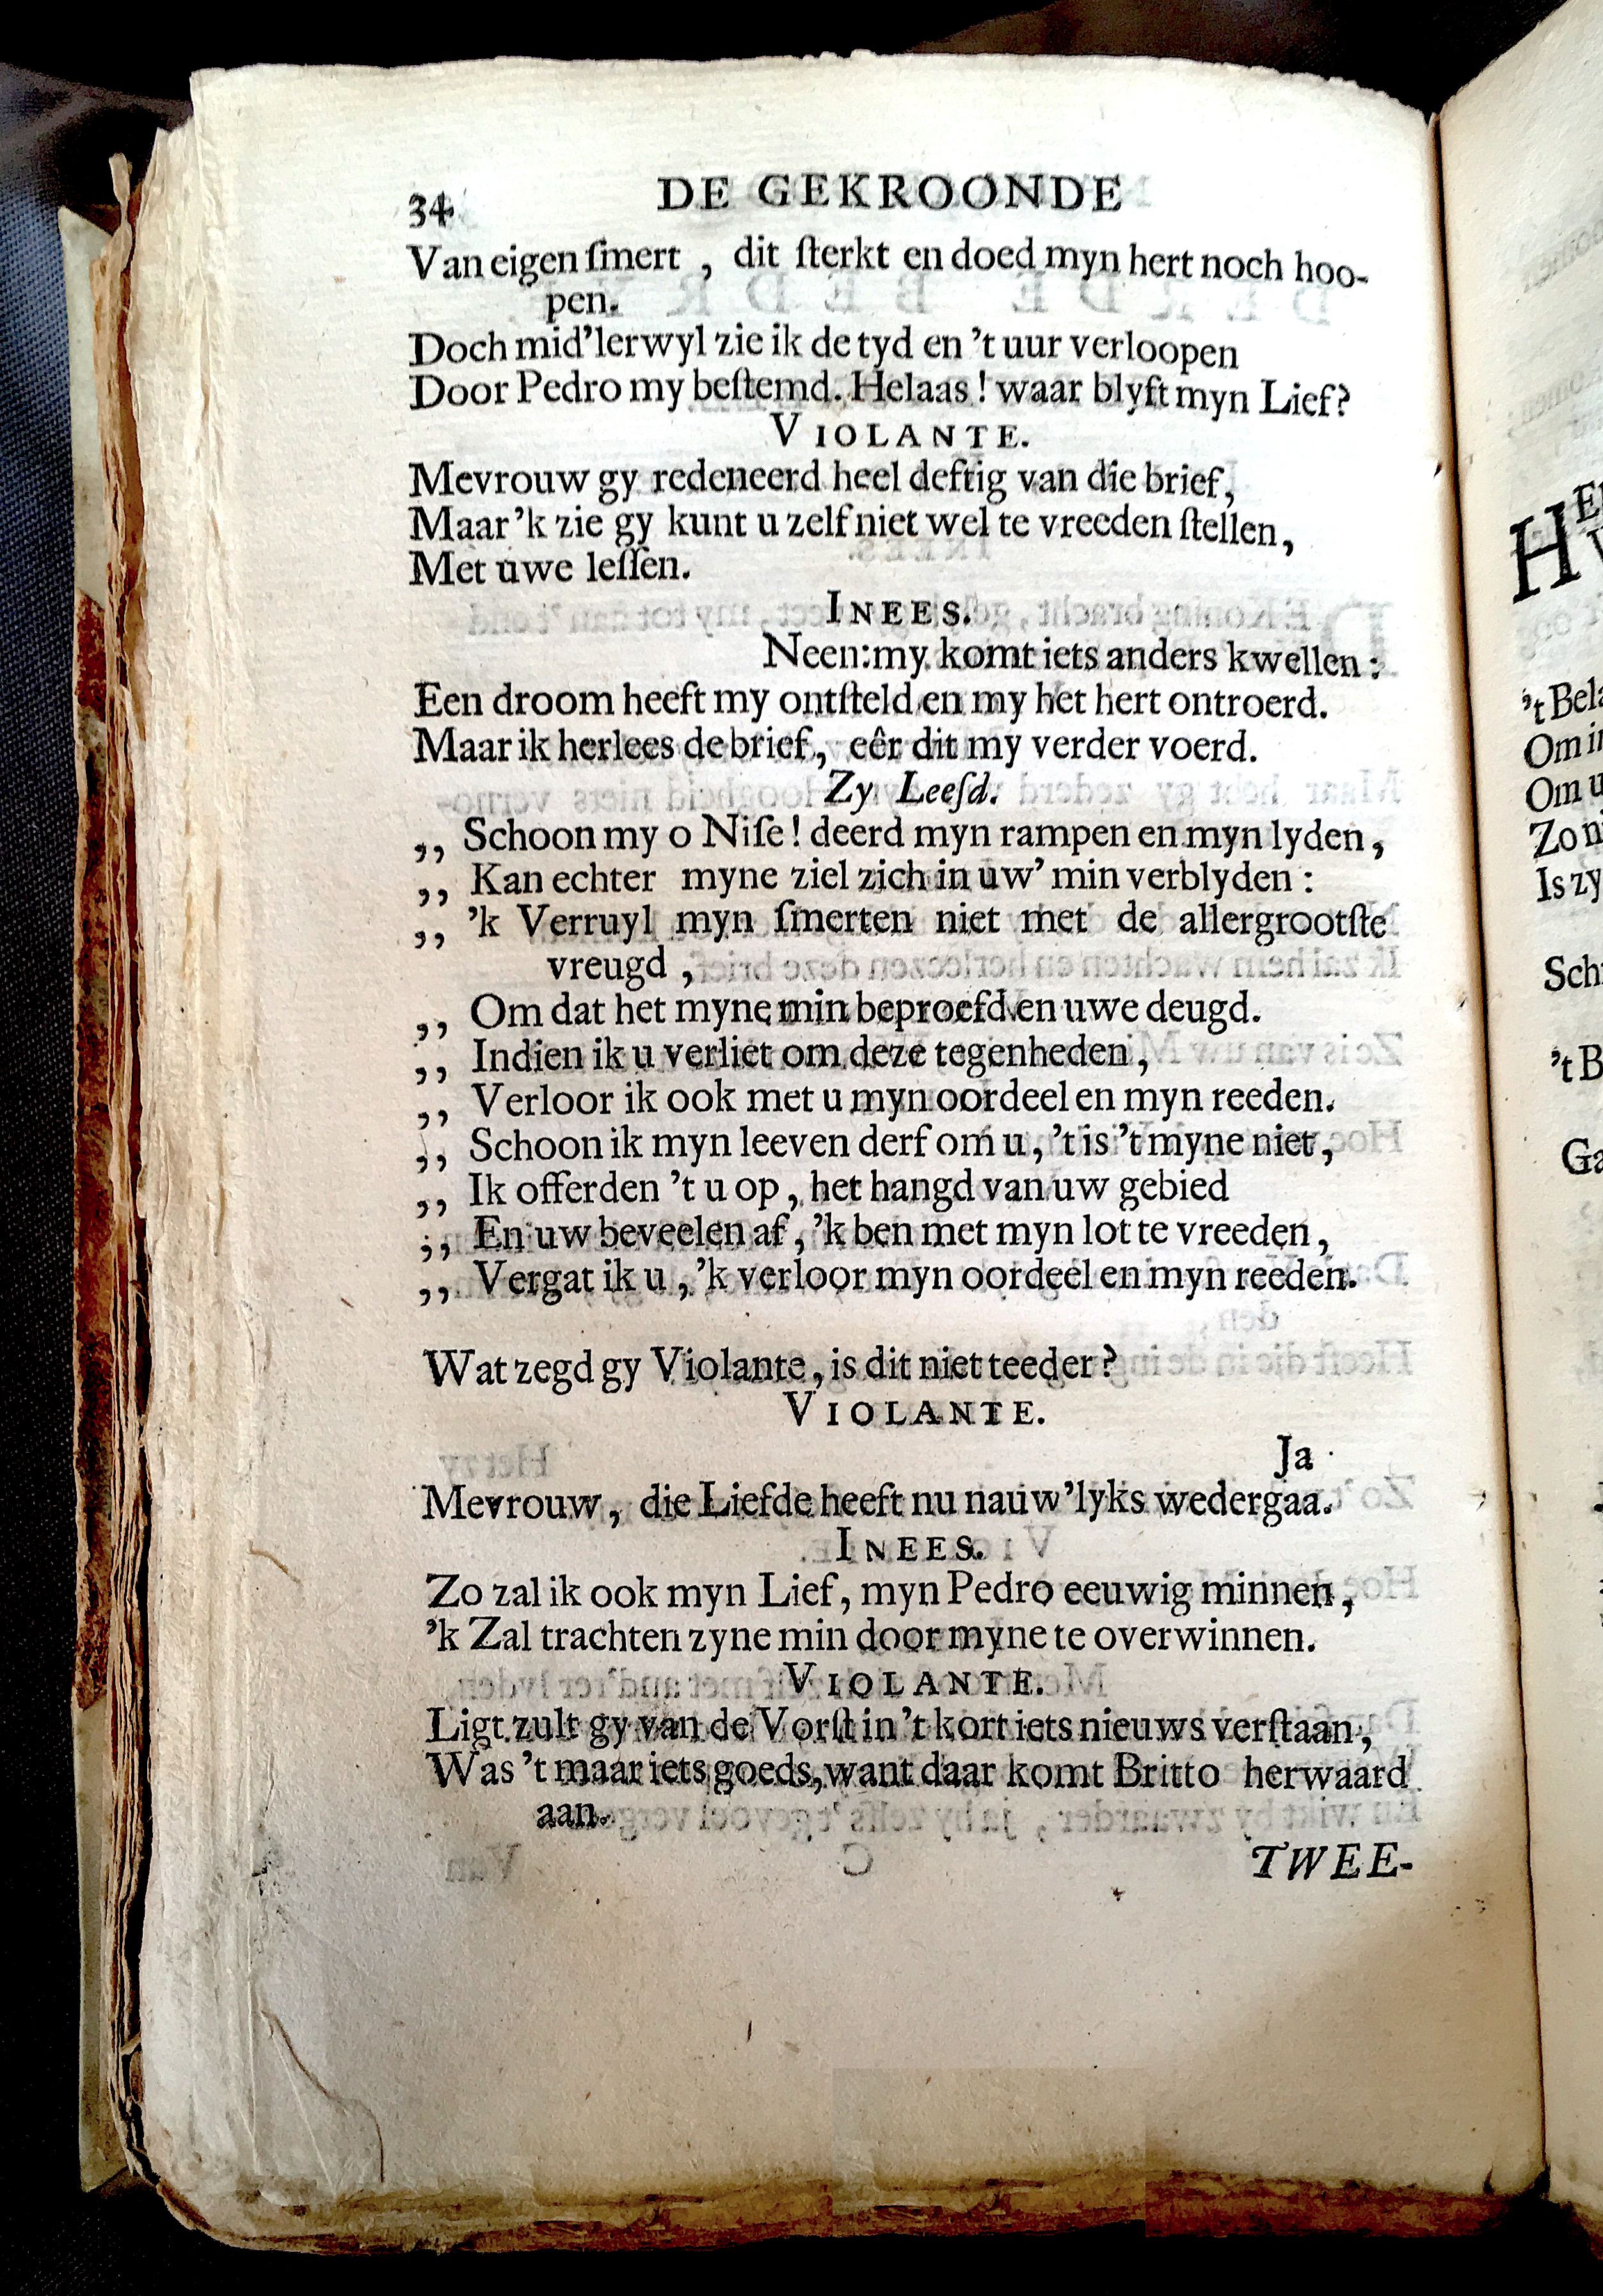 34 DE GEKROONDE
Van eigen ſmert , dit ſterkt en doed myn hert noch hoo-
pen.
Doch mid'lerwyl zie ik de tyd en 't uur verloopen
Door Pedro my beſtemd. Helaas ! waar blyft myn Lief?
VIOLANTE.
Mevrouw gy redeneerd heel deftig van die brief,
Maar 'k zie gy kunt u zelf niet wel te vreeden ſtellen,
Met uwe leſſen.
INEES.
Neen: my komt iets anders kwellen:
Een droom heeft my ontſteld en my het hert ontroerd.
Maar ik herlees de brief, eêr dit my verder voerd.
Zy Leeſd.
,, Schoon my o Niſe! deerd myn rampen en myn lyden,
,, Kan echter myne ziel zich in uw' min verblyden :
,, 'k Verruyl myn ſmerten niet met de allergrootſte
vreugd ,
,, Om dat het myne min beproefd en uwe deugd.
,, Indien ik u verliet om deze tegenheden,
,, Verloor ik ook met u myn oordeel en myn reeden.
,, Schoon ik myn leeven derf om u, 't is 't myne niet,
,, Ik offerden 't u op, het hangd van uw gebied
,, En uw beveelen af, 'k ben met myn lot te vreeden,
,, Vergat ik u, 'k verloor myn oordeel en myn reeden.
Wat zegd gy Violante, is dit niet teeder?
VIOLANTE.
Ja
Mevrouw, die Liefde heeft nu nauw'lyks wedergaa.
INEES.
Zo zal ik ook myn Lief, myn Pedro eeuwig minnen,
'k Zal trachten zyne min door myne te overwinnen.
VIOLANTE.
Ligt zult gy van de Vorſt in 't kort iets nieuws verſtaan,
Was 't maar iets goeds, want daar komt Britto herwaard
aan.
TWEE-
't Bel
Om i
Om u
Zo n
Is zy
Sch
't B
Ga